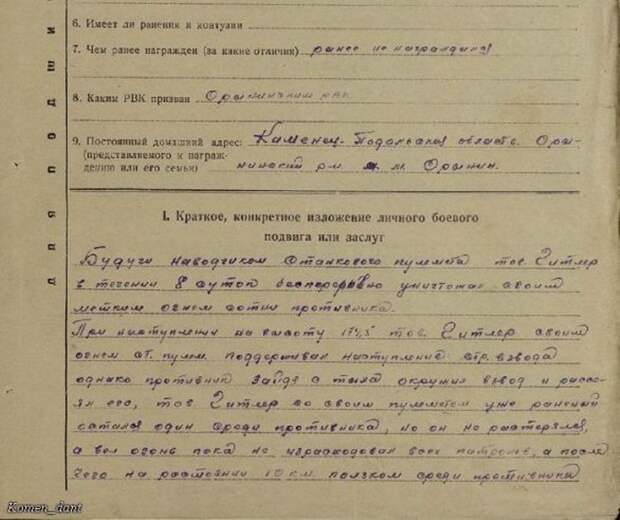 для подши
6. Имеет ли ранения и контузии
7. Чем ранее награжден (за какие отличия) ранее не награждался
8. Каким РВК призван Орынинским РВК
9. Постоянный домашний адрес: Каменец-Подольская область Оры-
(представляемого к награж- нинский р-н. м. Орынин.
дению или его семьи)
I. Краткое, конкретное изложение личного боевого
подвига или заслуг
Будучи наводчиком станкового пулемета тов. Гитлер
в течении 8 суток беспрерывно уничтожал своим
метким огнем сотни противника.
При наступлении на высоту 174,5 тов. Гитлер своим
огнем ст. пулем. поддерживал наступление стр. взвода
однако противник зайдя с тыла окружил взвод и рассе-
ял его, тов Гитлер со своим пулеметом уже раненый
остался один среди противника, но он не растерялся,
а вел огонь пока не израсходовал всех патронов, а после
чего на расстоянии 10 км. ползком среди противника
Komen_dant